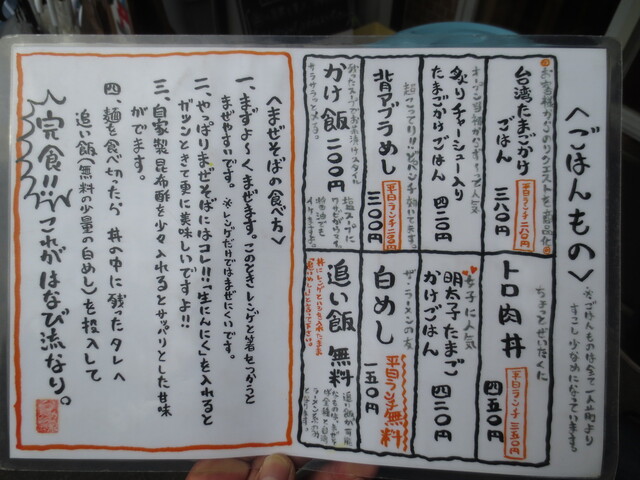 〈ごはんもの〉
※ごはんもの全て一人前より
すこし少なめになっています。
お客様からのリクエストを商品化
台湾たまごかけ
ごはん 三八〇円
平日ランチ二八〇円
炙りチャーシュー入り
たまごかけごはん 四二〇円
背アブラめし
三〇〇円
平日ランチ二〇〇円
かけ飯 二〇〇円
サラサラっと〆る。
ちょっとぜいたくに
トロ肉丼
四五〇円
平日ランチ三五〇円
女子に人気
明太子たまご
かけごはん 四二〇円
ザ・ラーメンの友
白めし
一五〇円
平日ランチ無料
追い飯 無料
〈まぜそばの食べ方〉
一、まずよ〜くまぜます。このときレンゲと箸をつかうと
まぜやすいです。※レンゲだけではまぜにくいです。
二、やっぱりまぜそばにはコレ!!「生にんにく」を入れると
ガツンときて更に美味しいですよ!!
三、自家製昆布酢を少々入れるとサッパリとした甘味
がでます。
四、麺を食べ切ったら丼の中に残ったタレへ
追い飯(無料の少量の白めし)を投入して
完食!!これがはなび流なり。